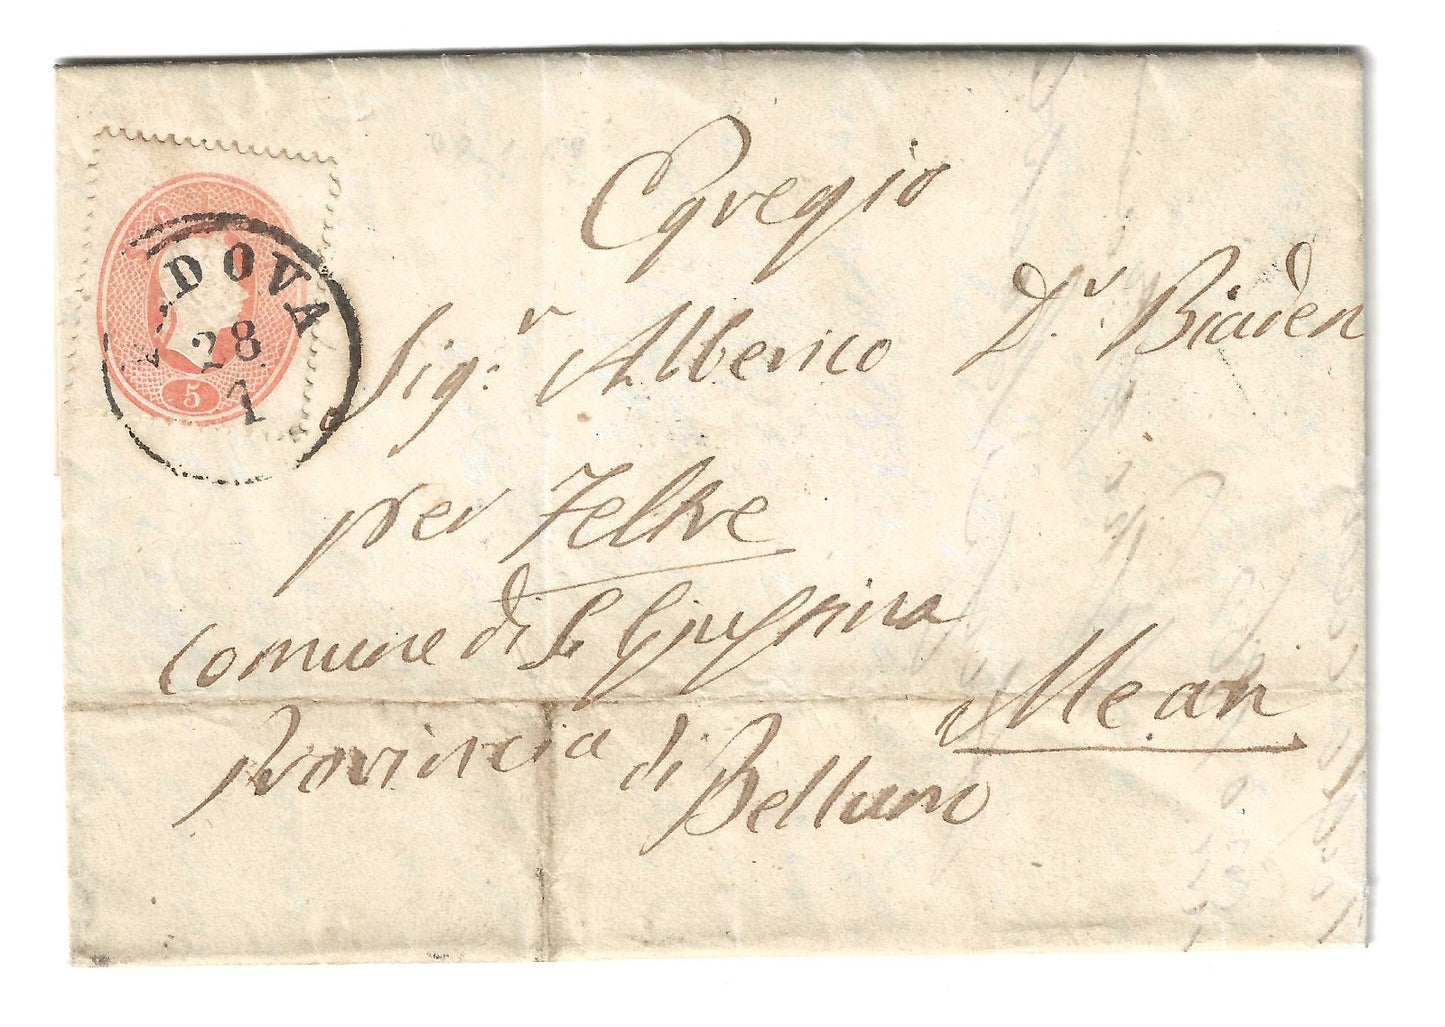 Egregio
Sig.r Alberico D.r Biaden
per Feltre
comune di S Giustina
Mean
Provincia di
Belluno
DOVA
28
7
5